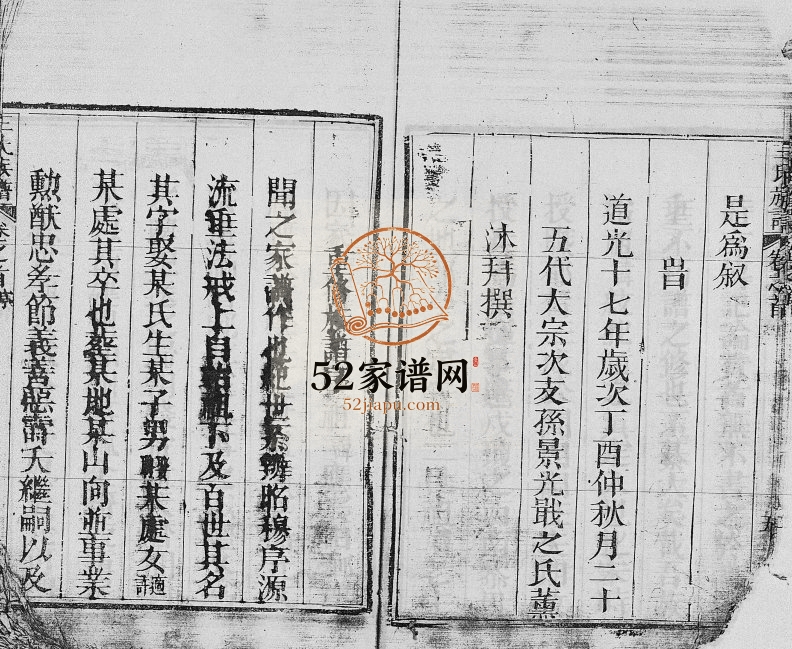 王氏族譜 卷之首
是爲叙
旹
道光十七年歲次丁酉仲秋月二十
五代大宗次支孫景光戢之氏薰
沐拜撰
重修族譜
聞之家譜作也紀世系辨昭穆序源
流垂法戒上自始祖下及百世其名
其字娶某氏生某子男某處女適
某處其卒也葬某地某山向而事業
勲猷忠孝節義善惡壽夭繼嗣以及
王氏族譜 卷之首
52家谱网
52jiapu.com